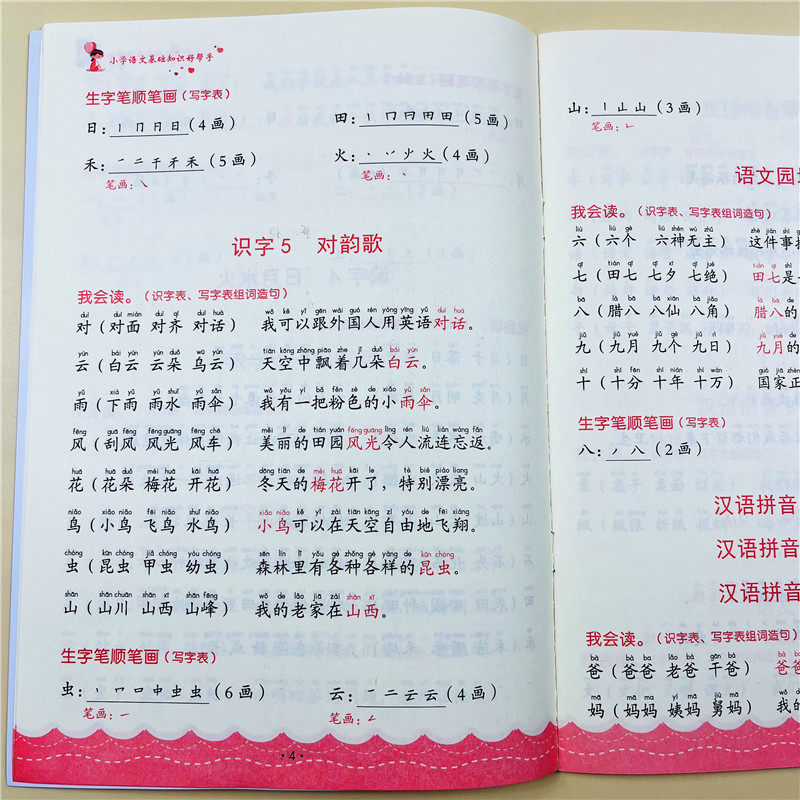 小学语文基础知识好帮手
生字笔顺笔画（写字表）
日：丨冂月日（4画） 田：丨冂冂用田（5画）
禾：一二千禾禾（5画） 火：丶丷少火（4画）
笔画：㇏ 笔画：丶
识字5 对韵歌
我会读。（识字表、写字表组词造句）
duì duì miàn duì qí duì huà wǒ kě yǐ gēn wài guó rén yòng yīng yǔ duì huà
对（对面 对齐 对话） 我可以跟外国人用英语对话。
yún bái yún yún duǒ wū yún tiān kōng zhōng piāo zhe jǐ duǒ bái yún
云（白云 云朵 乌云） 天空中飘着几朵白云。
yǔ xià yǔ yǔ shuǐ yǔ sǎn wǒ yǒu yì bǎ fěn sè de xiǎo yǔ sǎn
雨（下雨 雨水 雨伞） 我有一把粉色的小雨伞。
fēng guā fēng fēng guāng fēng chē měi lì de tián yuán fēng guāng lìng rén liú lián wàng fǎn
风（刮风 风光 风车） 美丽的田园风光令人流连忘返。
huā huā duǒ méi huā kāi huā dōng tiān de méi huā kāi le tè bié piào liang
花（花朵 梅花 开花） 冬天的梅花开了，特别漂亮。
niǎo xiǎo niǎo fēi niǎo shuǐ niǎo xiǎo niǎo kě yǐ zài tiān kōng zì yóu de fēi xiáng
鸟（小鸟 飞鸟 水鸟） 小鸟可以在天空自由地飞翔。
chóng kūn chóng jiǎ chóng yòu chóng sēn lín lǐ yǒu gè zhǒng gè yàng de kūn chóng
虫（昆虫 甲虫 幼虫） 森林里有各种各样的昆虫。
shān shān chuān shān xī shān fēng wǒ de lǎo jiā zài shān xī
山（山川 山西 山峰） 我的老家在山西。
生字笔顺笔画（写字表）
虫：丶口口中虫虫（6画） 云：一二云云（4画）
笔画：㇀ 笔画：㇜
·4·
山：丨山山（3画）
笔画：㇄
语文园
我会读。（识字表、写字表组词造句）
liù liù gè liù shén wú zhǔ zhè jiàn shì
六（六个 六神无主） 这件事
qī tián qī qī xī qī jué tián qī shì
七（田七 七夕 七绝） 田七是
bā là bā bā xiān bā jiǎo là bā de
八（腊八 八仙 八角） 腊八的
jiǔ jiǔ yuè jiǔ gè jiǔ rì jiǔ yuè de
九（九月 九个 九日） 九月的
shí shí fēn shí nián shí wàn guó jiā zhèng
十（十分 十年 十万） 国家正
生字笔顺笔画（写字表）
八：丿八（2画）
汉语拼音
汉语拼音
汉语拼音
我会读。（识字表、写字表组词造句）
bà bà ba lǎo bà gān bà bà ba
爸（爸爸 老爸 干爸） 爸爸
mā mā ma yí mā jiù mā wǒ de
妈（妈妈 姨妈 舅妈） 我的